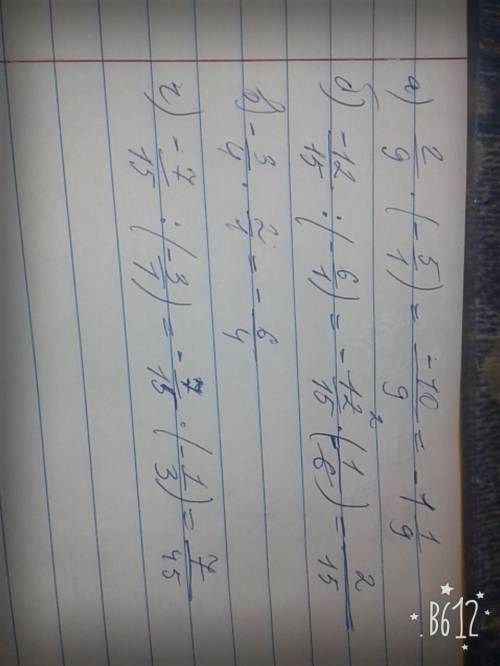 а) 2/9 · (-5/1) = -10/9 = -1 1/9
б) -12/15 : (-6/1) = -12/15 · (-1/6) = 2/15
в) -3/4 · 2/1 = -6/4
г) -7/15 : (-3/1) = -7/15 · (-1/3) = 7/45
B612